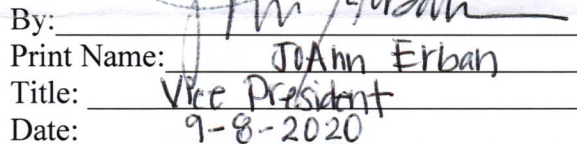 By:
Print Name: JoAnn Erban
Title: Vice President
Date: 9-8-2020